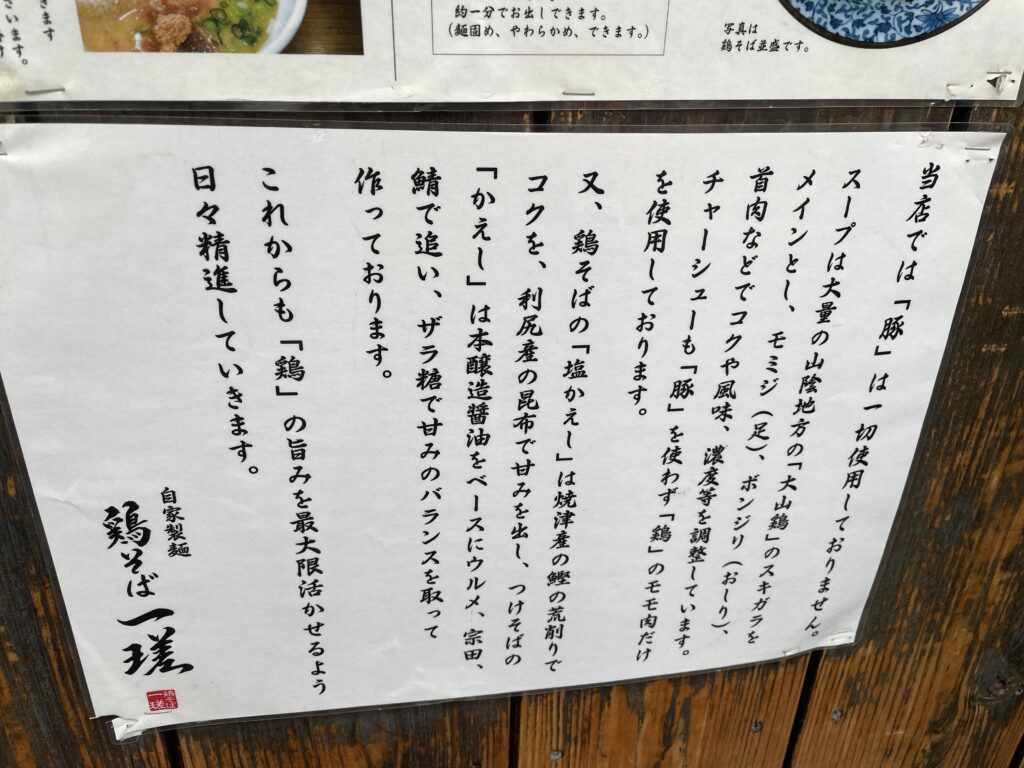 きます
さいます。
約一分でお出しできます。
(麺固め、やわらかめ、できます。)
写真は
鶏そば並盛です。
当店では「豚」は一切使用しておりません。
スープは大量の山陰地方の「大山鶏」のスキガラを
メインとし、モミジ(足)、ボンジリ(おしり)、
首肉などでコクや風味、濃度等を調整しています。
チャーシューも「豚」を使わず「鶏」のモモ肉だけ
を使用しております。
又、鶏そばの「塩かえし」は焼津産の鰹の荒削りで
コクを、利尻産の昆布で甘みを出し、つけそばの
「かえし」は本醸造醤油をベースにウルメ、宗田、
鯖で追い、ザラ糖で甘みのバランスを取って
作っております。
これからも「鶏」の旨みを最大限活かせるよう
日々精進していきます。
自家製麺
鶏そば 一瑳
鶏そば
一瑳